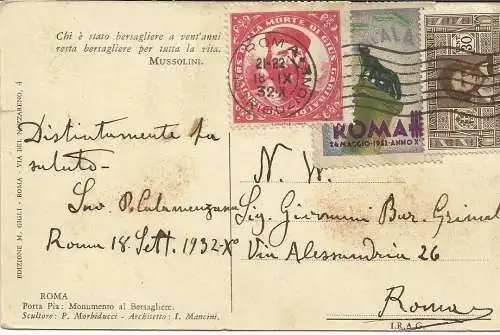 Chi è stato bersagliere a vent'anni
resta bersagliere per tutta la vita.
MUSSOLINI.
EDIZIONE M. GIGLI - ROMA - VIA DEL NAZZARENO, 4
ROMA
21-22
18 IX
32·X
ALA
ROMA
24 MAGGIO·1932·ANNO X
30
Distintamente La
saluto -
Roma 18. Sett. 1932-X°
N. W.
Sig. Giovanni Bur. Grimal
Via Alessandria 26
Roma
ROMA
Porta Pia: Monumento al Bersagliere.
Scultore: P. Morbiducci - Architetto: I. Mancini.
I.R.A.G.